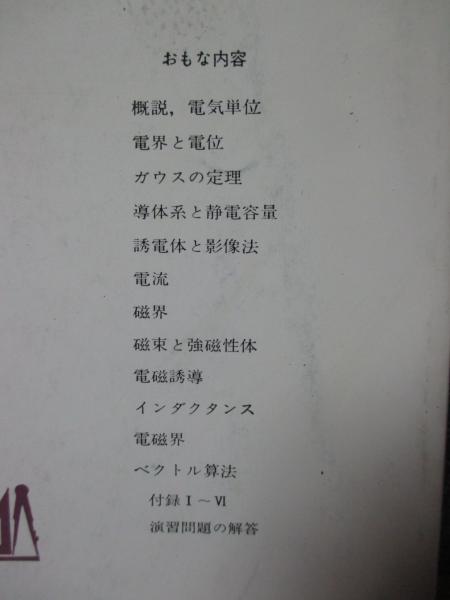 おもな内容
概説，電気単位
電界と電位
ガウスの定理
導体系と静電容量
誘電体と影像法
電流
磁界
磁束と強磁性体
電磁誘導
インダクタンス
電磁界
ベクトル算法
付録Ⅰ～Ⅵ
演習問題の解答